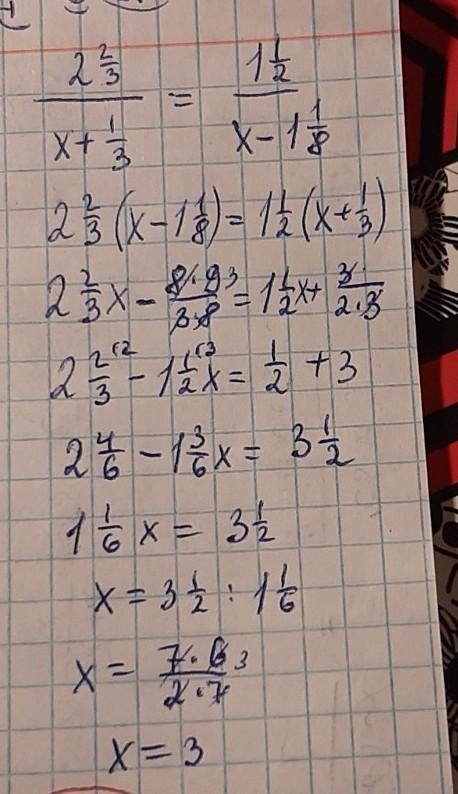 2 2/3 / (x + 1/3) = 1 1/2 / (x - 1 1/8)
2 2/3 (x - 1 1/8) = 1 1/2 (x + 1/3)
2 2/3 x - 8·9 3 / 3·8 = 1 1/2 x + 3 / 2·3
2 2/3 (2 - 1 1/2 (3 x = 1/2 + 3
2 4/6 - 1 3/6 x = 3 1/2
1 1/6 x = 3 1/2
x = 3 1/2 : 1 1/6
x = 7·6 3 / 2·7
x = 3